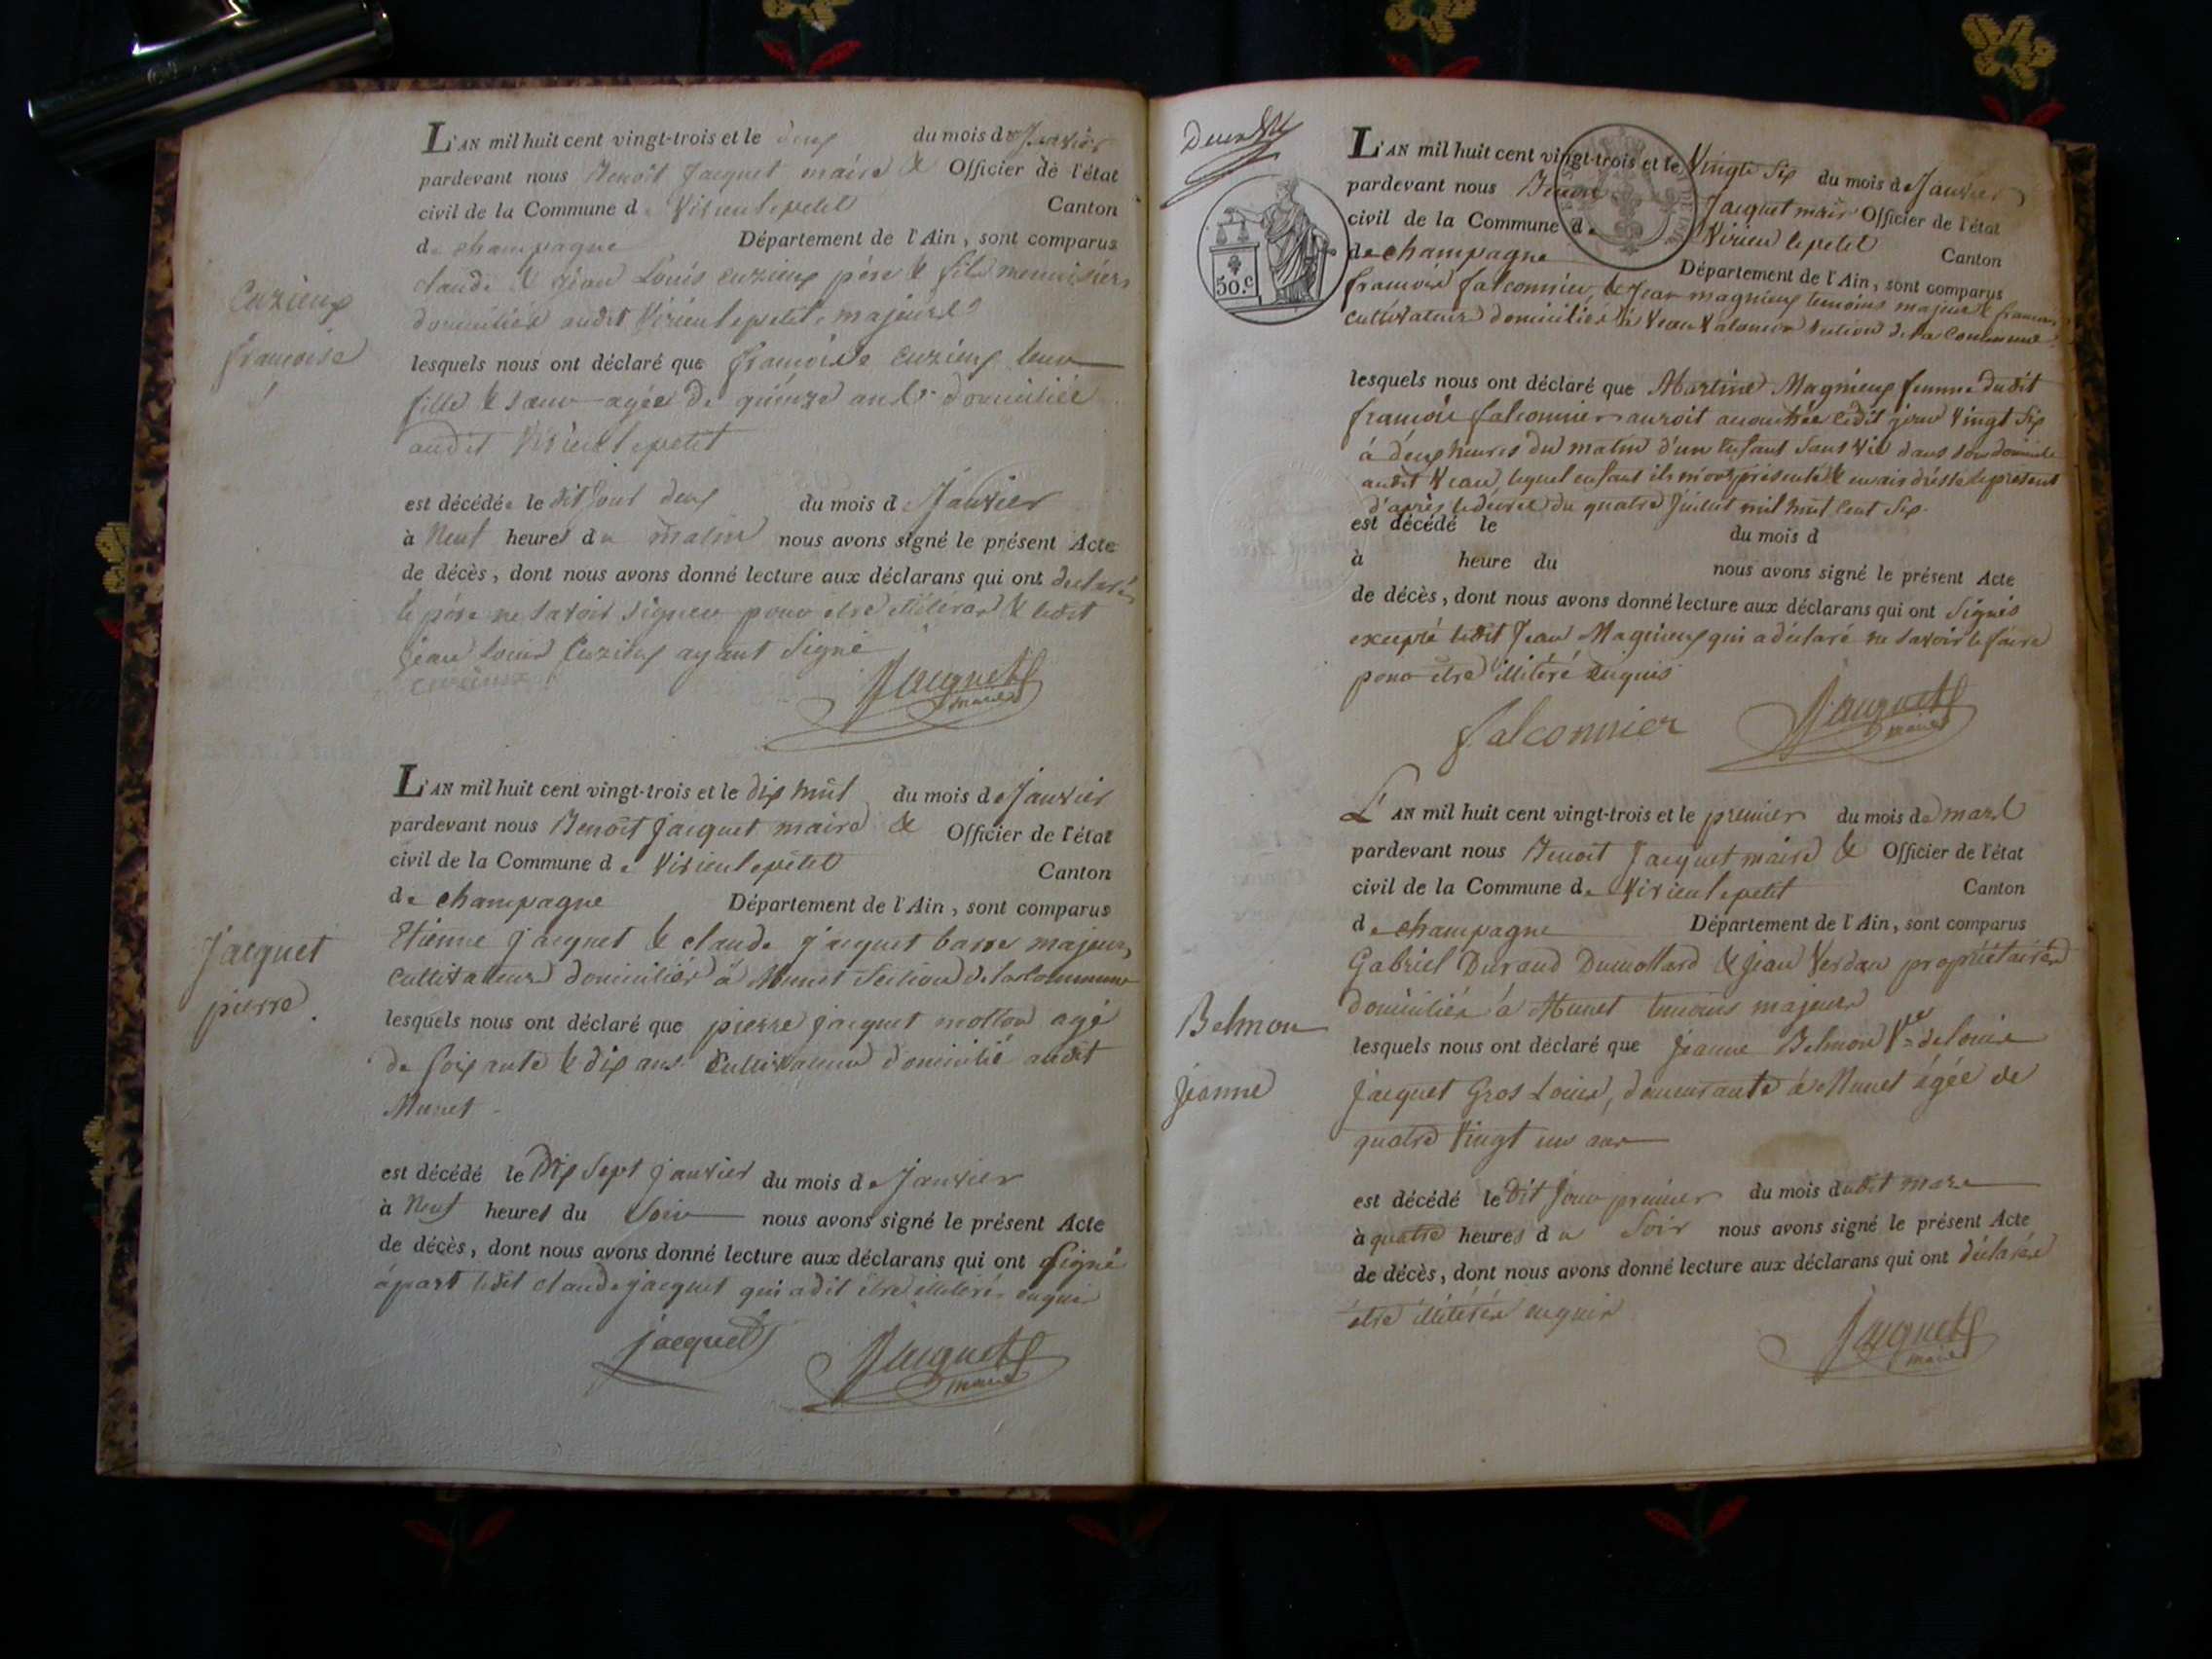 L'AN mil huit cent vingt-trois et le deux du mois de Janvier
pardevant nous Benoît Jacquet maire & Officier de l'état
civil de la Commune de Virieu le petit Canton
de champagne Département de l'Ain, sont comparus
claude & jean Louis cuzieux père & fils menuisiers
domiciliés audit Virieu le petit, majeurs
Cuzieux
françoise
lesquels nous ont déclaré que françoise cuzieux leur
fille & sœur agée de quinze ans domiciliée
audit Virieu le petit
est décédée le dit jour deux du mois de Janvier
à Neuf heures du matin nous avons signé le présent Acte
de décès, dont nous avons donné lecture aux déclarans qui ont declaré,
le père ne savoir signer pour être & ledit
jean Louis Cuzieux ayant signé
cuzieux Jacquet
maire
L'AN mil huit cent vingt-trois et le dix huit du mois de Janvier
pardevant nous Benoît Jacquet maire & Officier de l'état
civil de la Commune de Virieu le petit Canton
de champagne Département de l'Ain, sont comparus
Etienne jacquet & claude jacquet basse majeurs,
cultivateurs domiciliés à Munet Section de la commune
Jacquet
pierre.
lesquels nous ont déclaré que pierre jacquet mollon agé
de soixante & dix ans cultivateur domicilié audit
Munet
est décédé le Dix Sept janvier du mois de Janvier
à Neuf heures du Soir nous avons signé le présent Acte
de décès, dont nous avons donné lecture aux déclarans qui ont signé
àpart ledit claude jacquet qui a dit être enquis
jacquet Jacquet
maire
50.c
L'AN mil huit cent vingt-trois et le Vingt Six du mois de Janvier
pardevant nous Benoit Jacquet maire Officier de l'état
civil de la Commune de Virieu le petit Canton
de champagne Département de l'Ain, sont comparus
françois falconnier & Jean magnieux temoins majeurs & francais
cultivateurs domiciliés à section de la Commune
lesquels nous ont déclaré que Martine Magnieux femme dudit
françois falconnier auroit accouchée ledit jour Vingt Six
à deux heures du matin d'un Enfant Sans Vie dans son domicile
audit lequel enfant ils m'ont présenté & en ais dressé le présent
d'après le décret du quatre Juillet mil huit Cent Six.
est décédé le du mois d
à heure du nous avons signé le présent Acte
de décès, dont nous avons donné lecture aux déclarans qui ont Signés
excepté ledit Jean Magnieux qui a déclaré ne savoir le faire
pour être illitéré enquis
falconnier Jacquet
maire
L'AN mil huit cent vingt-trois et le premier du mois de mars
pardevant nous Benoit Jacquet maire & Officier de l'état
civil de la Commune de Virieu le petit Canton
de champagne Département de l'Ain, sont comparus
Gabriel Durand Dumollard & Jean Verdan propriétaires
domiciliés à Munet temoins majeurs
Belmon
Jeanne
lesquels nous ont déclaré que Jeanne Belmon Vve de louis
Jacquet Gros Louis, demeurante à Munet agée de
quatre Vingt un ans
est décédé le Dit Jour premier du mois dudit mars
à quatre heures du Soir nous avons signé le présent Acte
de décès, dont nous avons donné lecture aux déclarans qui ont déclarés
être enquis
Jacquet
maire